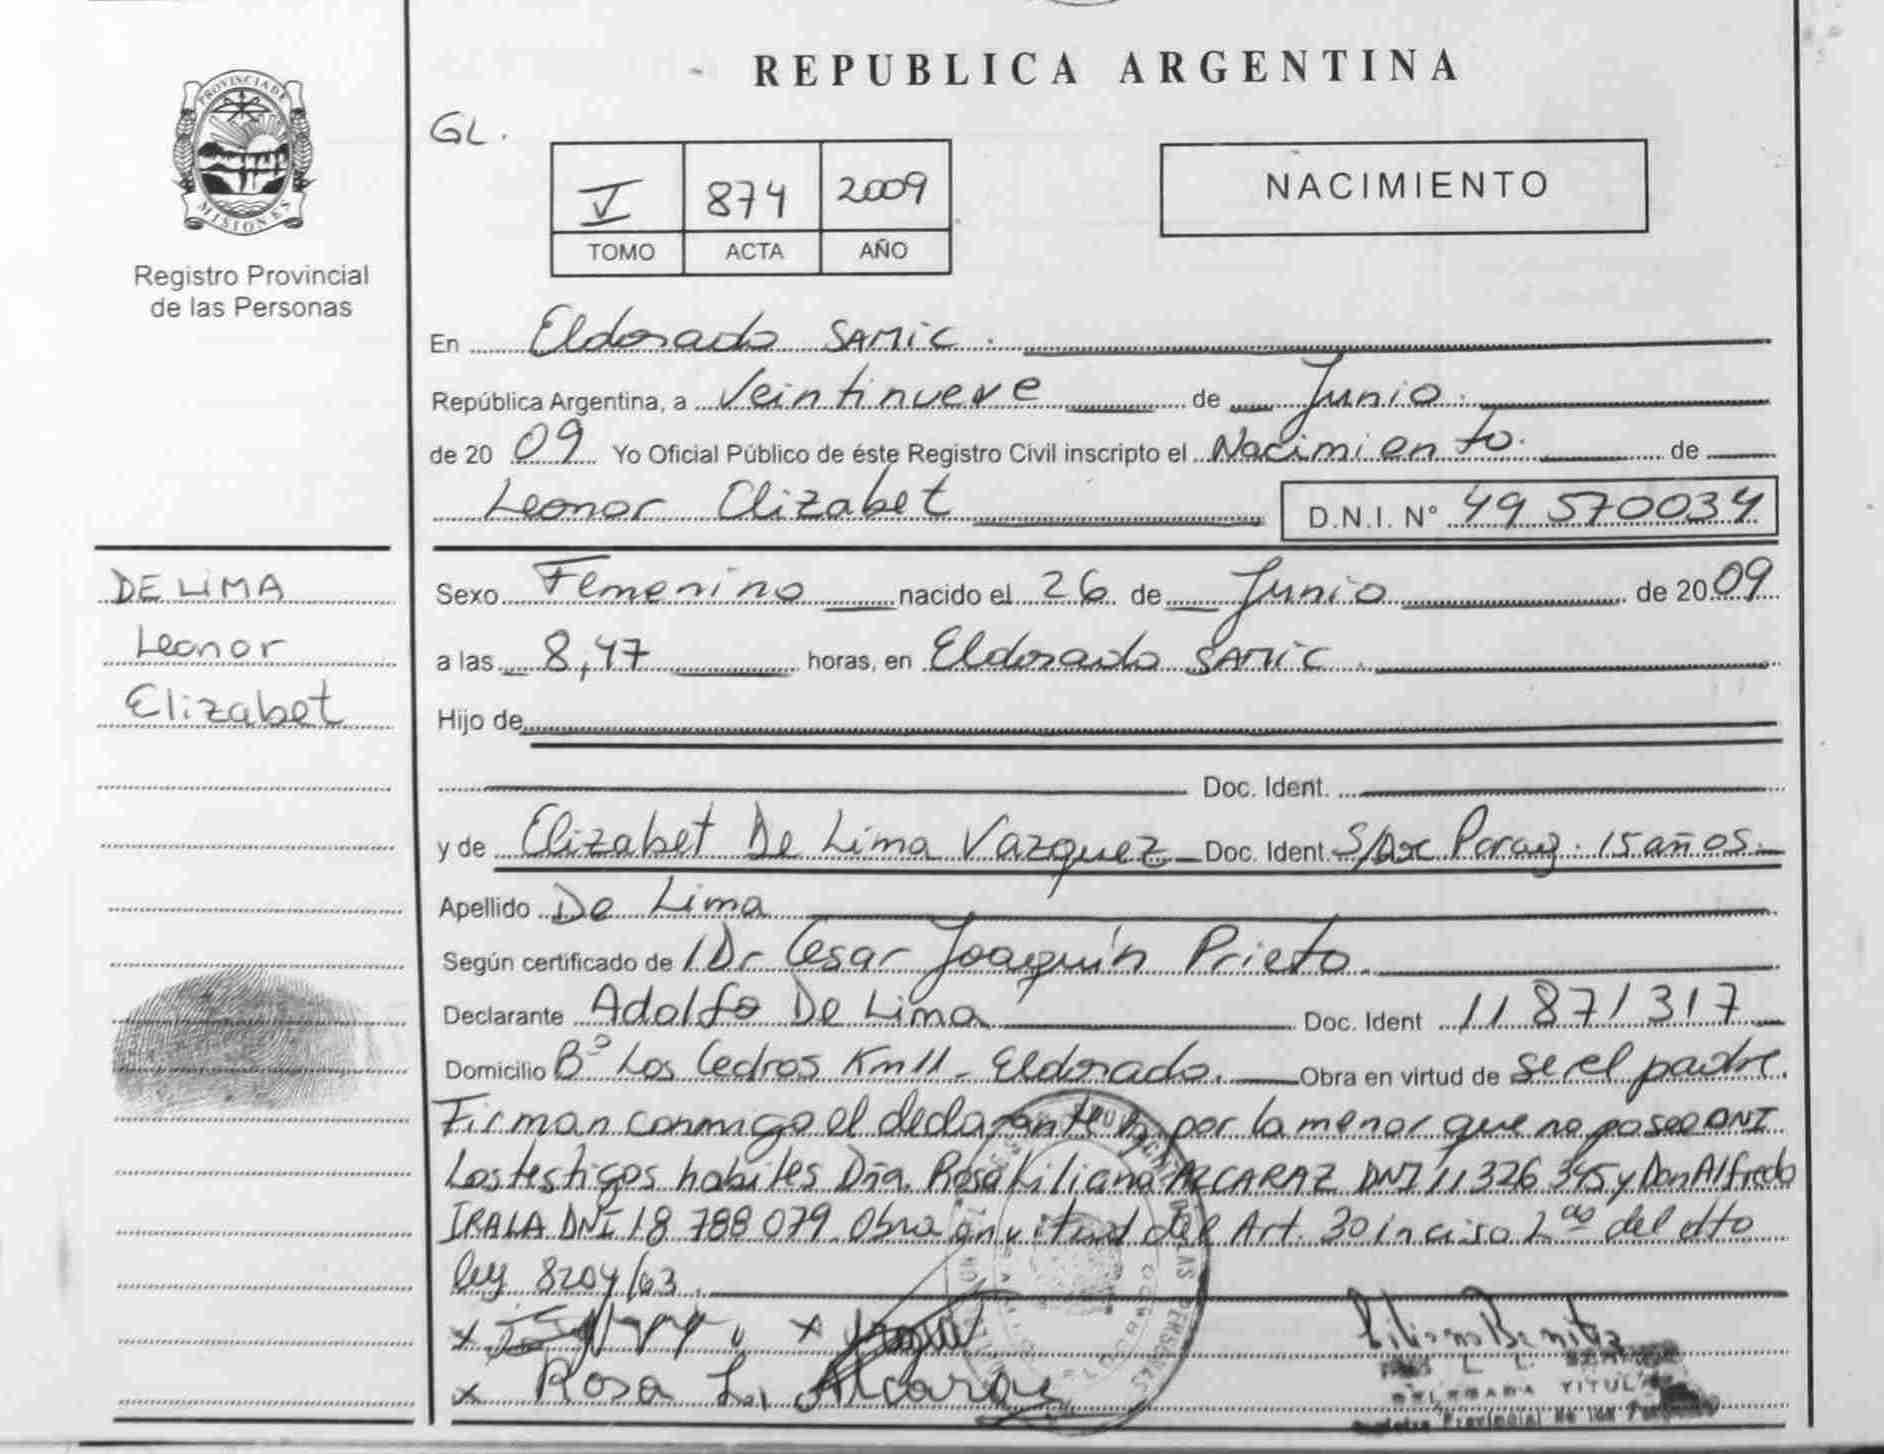 REPUBLICA ARGENTINA
PROVINCIA DE
MISIONES
Registro Provincial
de las Personas
GL.
V 874 2009
TOMO ACTA AÑO
NACIMIENTO
En Eldorado SAMIC.
República Argentina, a Veintinueve de Junio.
de 20 09 Yo Oficial Público de éste Registro Civil inscripto el Nacimiento. de
Leonor Elizabet D.N.I. N° 49 570034
DE LIMA
Leonor
Elizabet
Sexo Femenino nacido el 26 de Junio de 20 09
a las 8,47 horas, en Eldorado SAMIC.
Hijo de
Doc. Ident.
y de Elizabet De Lima Vazquez Doc. Ident. 15 años.
Apellido De Lima
Según certificado de Dr Cesar Joaquín Prieto.
Declarante Adolfo De Lima Doc. Ident 11871317
Domicilio B° Los Cedros Km 11 - Eldorado. Obra en virtud de ser el padre.
Firman conmigo el declarante por la menor que no posee DNI
Los testigos habiles Dña. Rosa Liliana ALCARAZ DNI 11 326 345 y Don Alfredo
IRALA DNI 18 788 079. Obra en virtud del Art. 30 inciso 2do del dto
ley 8204/63.
x x
x Rosa L. Alcaraz
Liliana Benitez
DELEGADA TITULAR
Registro Provincial de las